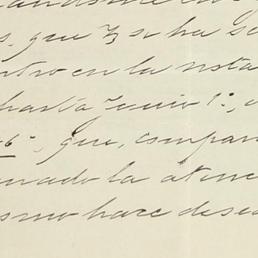 que se ha se
ntro en la nota
hasta Junio 1º,
6º, que, compar
mado la atenc
smo hace dese